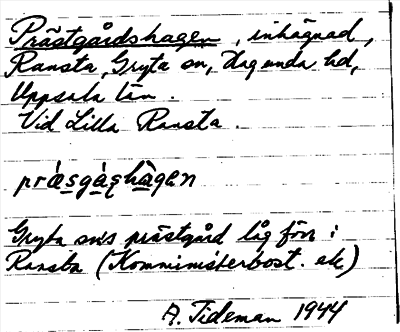 Prästgårdshagen, inhägnad,
Ransta, Gryta sn, Hagunda hd,
Uppsala län.
Vid Lilla Ransta.
præsgȧshàgen
Gryta sns prästgård låg förr i
Ransta (Komministerbost. ek)
A. Tideman 1944